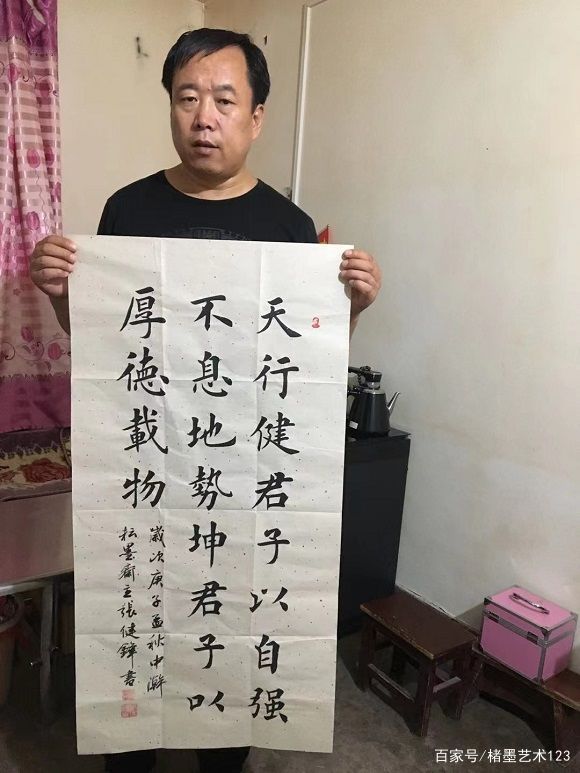 天行健君子以自强
不息地勢坤君子以
厚德載物
歲次庚子孟秋中澣
耘墨齋主張健鋒書
百家号/楮墨艺术123